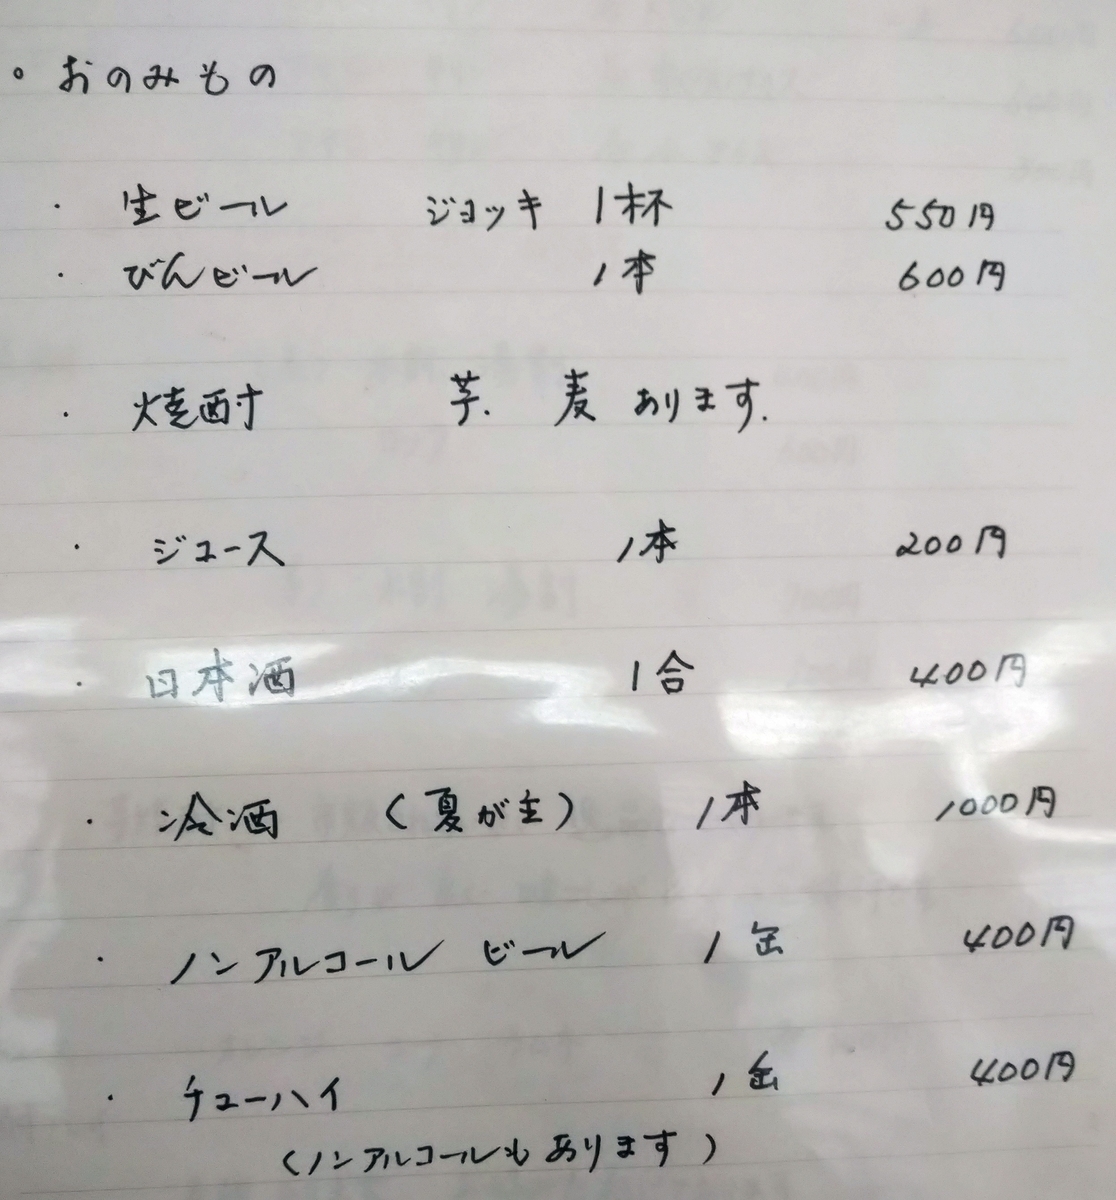 。おのみもの
・ 生ビール ジョッキ 1杯 550円
・ びんビール 1本 600円
・ 焼酎 芋、麦 あります.
・ ジュース 1本 200円
・ 日本酒 1合 400円
・ 冷酒 (夏が主) 1本 1000円
・ ノンアルコール ビール 1缶 400円
・ チューハイ 1缶 400円
(ノンアルコールもあります)